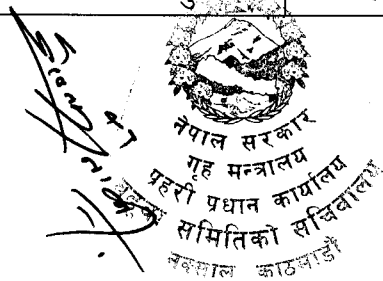 नेपाल सरकार
गृह मन्त्रालय
प्रहरी प्रधान कार्यालय
समितिको सचिवालय
नक्साल काठमाडौं